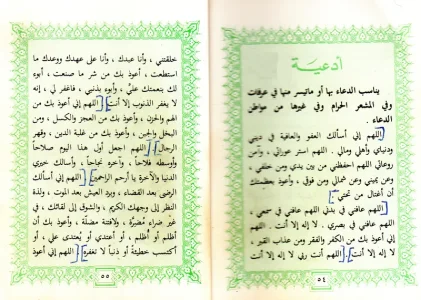 أدعية
يناسب الدعاء بها أو ماتيسر منها في عرفات
وفي المشعر الحرام وفي غيرها من مواطن
الدعاء .
اللهم إني أسألك العفو والعافية في ديني
ودنياي وأهلي ومالي . اللهم استر عوراتي ، وآمن
روعاتي اللهم احفظني من بين يدي ومن خلفي ،
وعن يميني وعن شمالي ومن فوقي ، وأعوذ بعظمتك
أن أغتال من تحتي
اللهم عافني في بدني اللهم عافني في سمعي ،
اللهم عافني في بصري . لا إله إلا أنت . اللهم
إني أعوذ بك من الكفر والفقر ومن عذاب القبر ،
لا إله إلا أنت . اللهم أنت ربي لا إله إلا أنت
٥٤
خلقتني ، وأنا عبدك ، وأنا على عهدك ووعدك ما
استطعت ، أعوذ بك من شر ما صنعت ، أبوء
لك بنعمتك علي ، وأبوء بذنبي ، فاغفر لي ، إنه
لا يغفر الذنوب إلا أنت . اللهم إني أعوذ بك من
الهم والحزن ، وأعوذ بك من العجز والكسل ، ومن
البخل والجبن ، وأعوذ بك من غلبة الدين ، وقهر
الرجال . اللهم اجعل أول هذا اليوم صلاحاً
وأوسطه فلاحاً ، وآخره نجاحاً ، وأسألك خيري
الدنيا والآخرة يا أرحم الراحمين . اللهم إني أسألك
الرضى بعد القضاء ، وبرد العيش بعد الموت ، ولذة
النظر إلى وجهك الكريم ، والشوق إلى لقائك ، في
غير ضراء مضرة ، ولافتنة مضلة ، وأعوذ بك أن
أظلم أو أظلم ، أو أعتدي أو يعتدى علي ، أو
أكتسب خطيئة أو ذنباً لا تغفره . اللهم إني أعوذ
٥٥